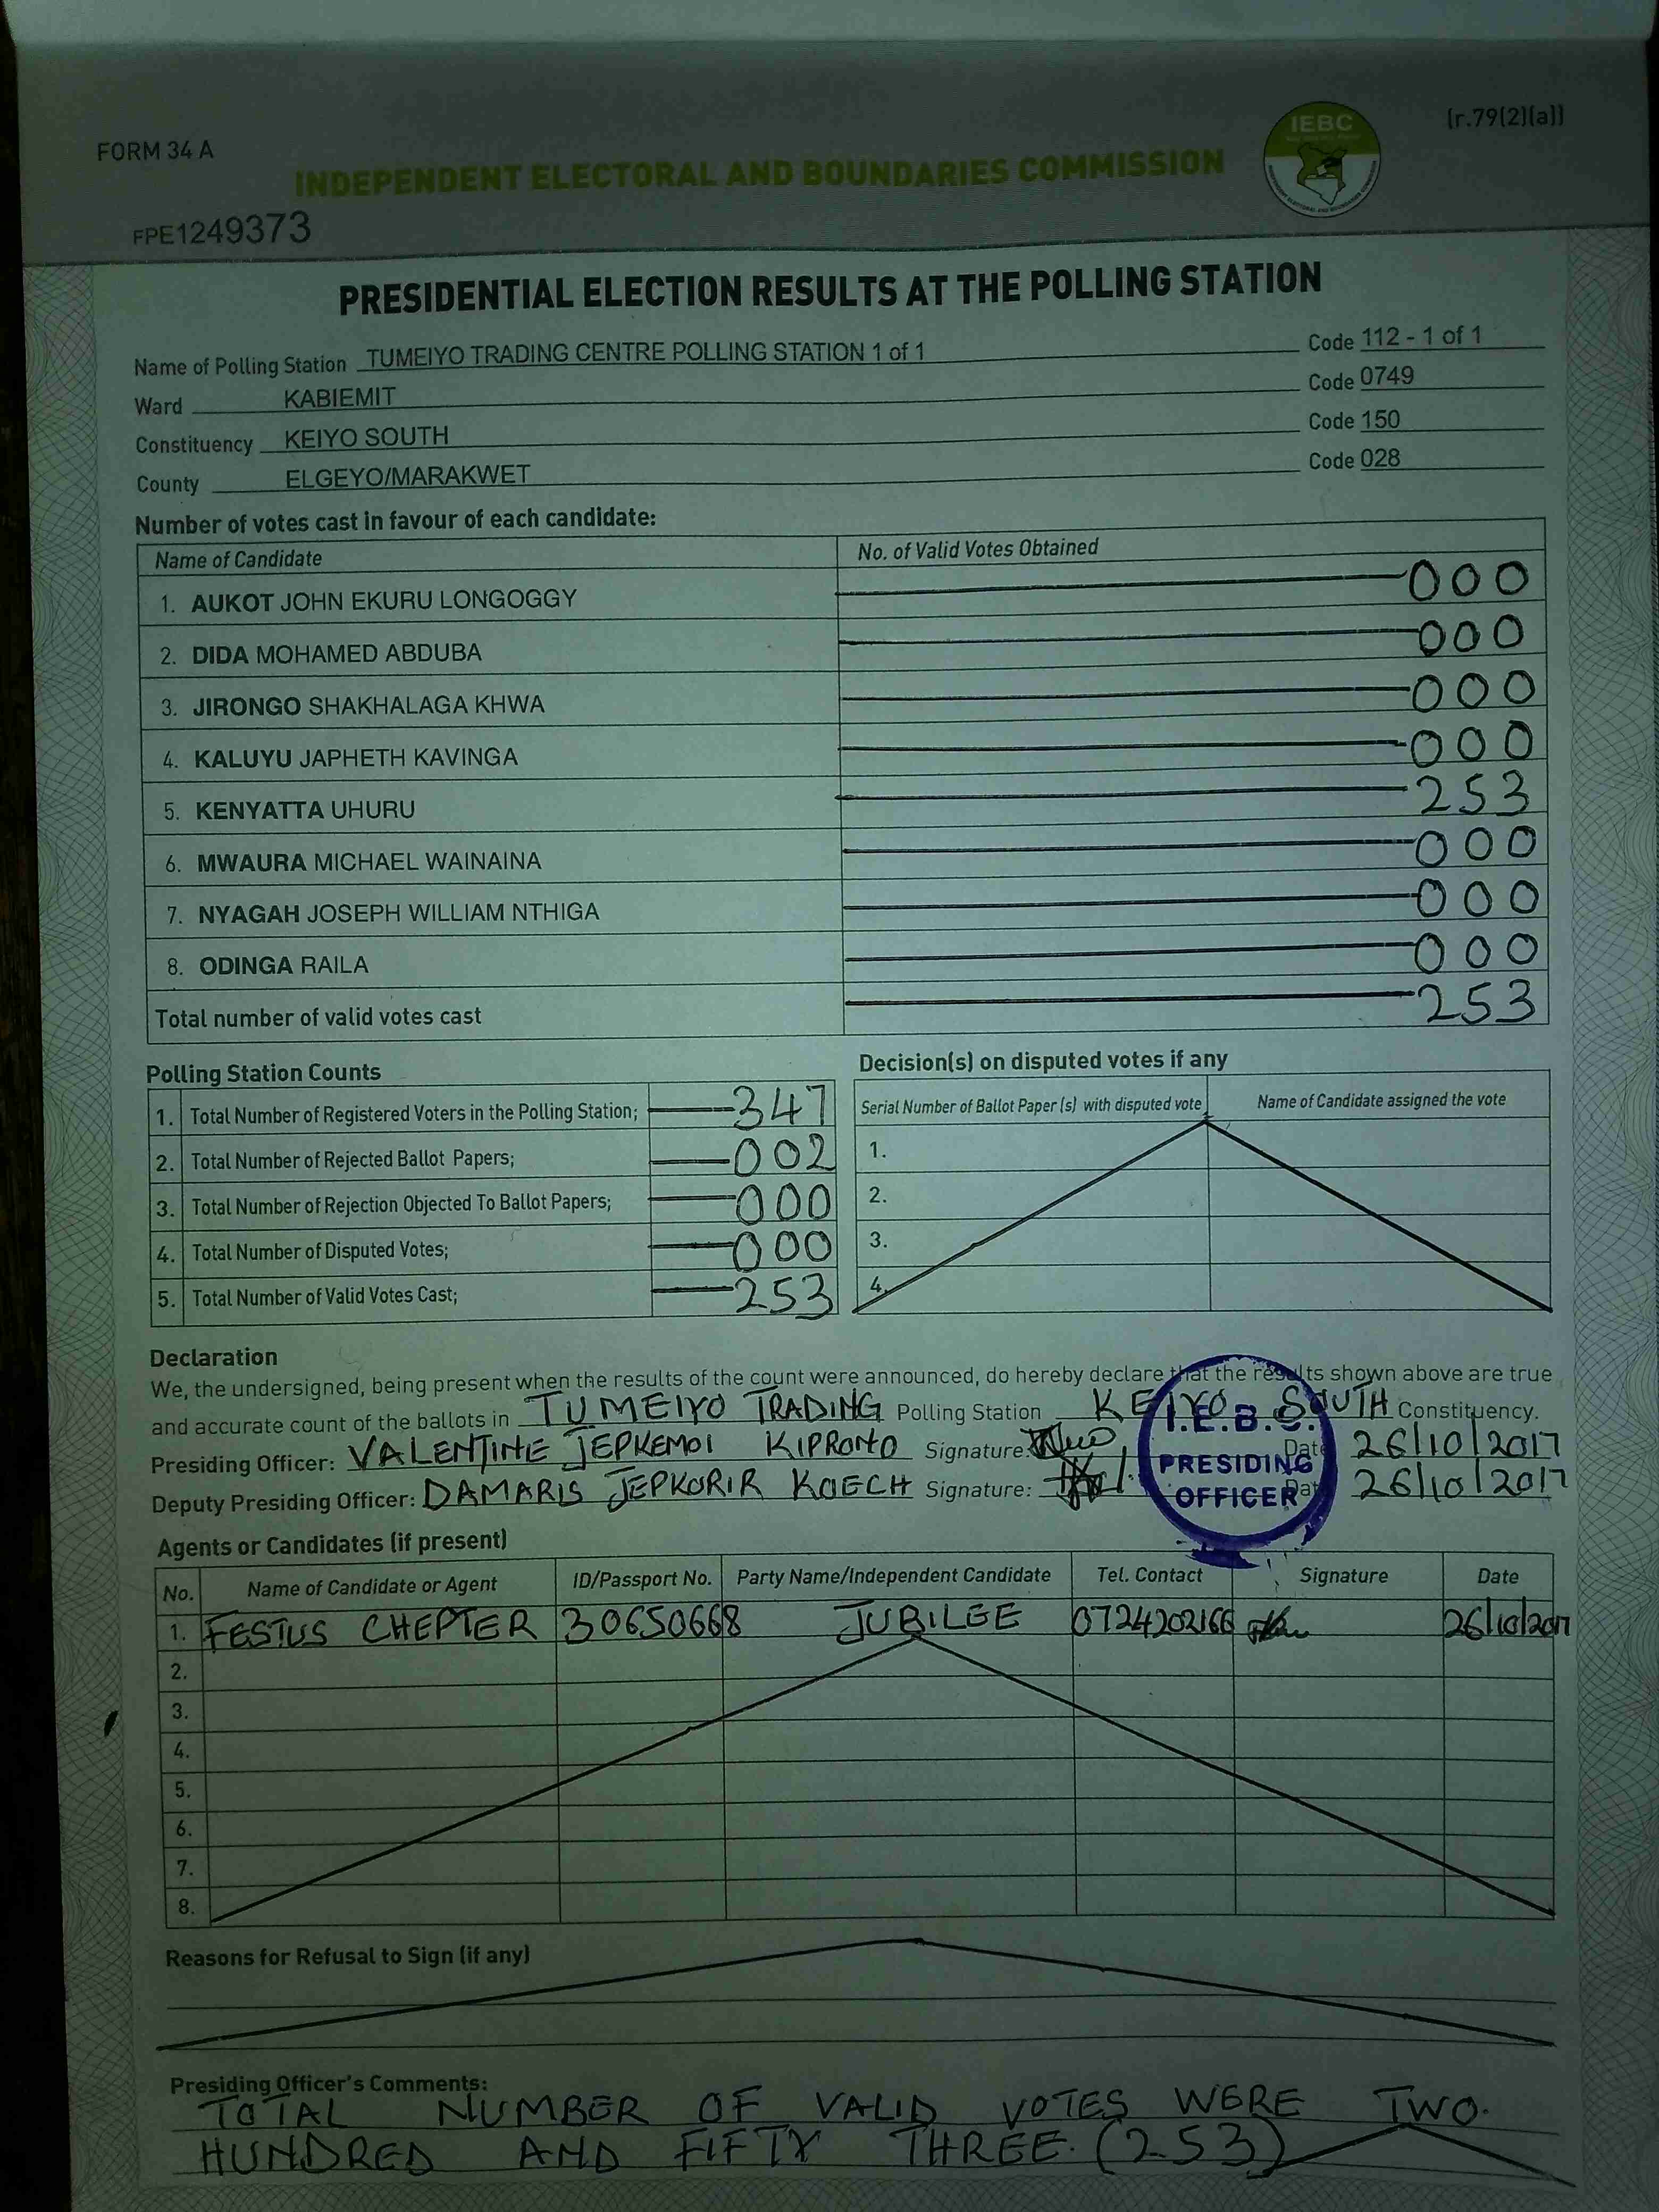 FORM 34 A
[r.79(2)(a)]
INDEPENDENT ELECTORAL AND BOUNDARIES COMMISSION
IEBC
FPE1249373
PRESIDENTIAL ELECTION RESULTS AT THE POLLING STATION
Name of Polling Station TUMEIYO TRADING CENTRE POLLING STATION 1 of 1 Code 112 - 1 of 1
Ward KABIEMIT Code 0749
Constituency KEIYO SOUTH Code 150
County ELGEYO/MARAKWET Code 028
Number of votes cast in favour of each candidate:
Name of Candidate No. of Valid Votes Obtained
1. AUKOT JOHN EKURU LONGOGGY 000
2. DIDA MOHAMED ABDUBA 000
3. JIRONGO SHAKHALAGA KHWA 000
4. KALUYU JAPHETH KAVINGA 000
5. KENYATTA UHURU 253
6. MWAURA MICHAEL WAINAINA 000
7. NYAGAH JOSEPH WILLIAM NTHIGA 000
8. ODINGA RAILA 000
Total number of valid votes cast 253
Polling Station Counts
1. Total Number of Registered Voters in the Polling Station; 347
2. Total Number of Rejected Ballot Papers; 002
3. Total Number of Rejection Objected To Ballot Papers; 000
4. Total Number of Disputed Votes; 000
5. Total Number of Valid Votes Cast; 253
Decision(s) on disputed votes if any
Serial Number of Ballot Paper (s) with disputed vote Name of Candidate assigned the vote
1.
2.
3.
4.
Declaration
We, the undersigned, being present when the results of the count were announced, do hereby declare that the results shown above are true
and accurate count of the ballots in TUMEIYO TRADING Polling Station KEIYO SOUTH Constituency.
Presiding Officer: VALENTINE JEPKEMOI KIPRONO Signature: Date 26/10/2017
Deputy Presiding Officer: DAMARIS JEPKORIR KOECH Signature: Date 26/10/2017
I.E.B.C.
PRESIDING
OFFICER
Agents or Candidates (if present)
No. Name of Candidate or Agent ID/Passport No. Party Name/Independent Candidate Tel. Contact Signature Date
1. FESTUS CHEPTER 30650668 JUBILEE 0724202166 26/10/2017
2.
3.
4.
5.
6.
7.
8.
Reasons for Refusal to Sign (if any)
Presiding Officer's Comments:
TOTAL NUMBER OF VALID VOTES WERE TWO
HUNDRED AND FIFTY THREE. (253)